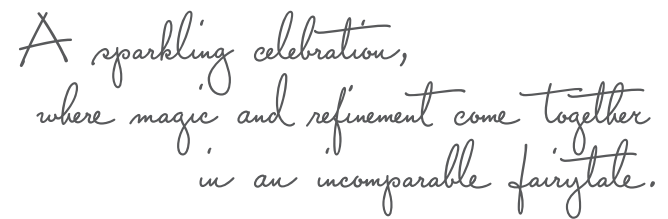 A sparkling celebration,
where magic and refinement come together
in an incomparable fairytale.